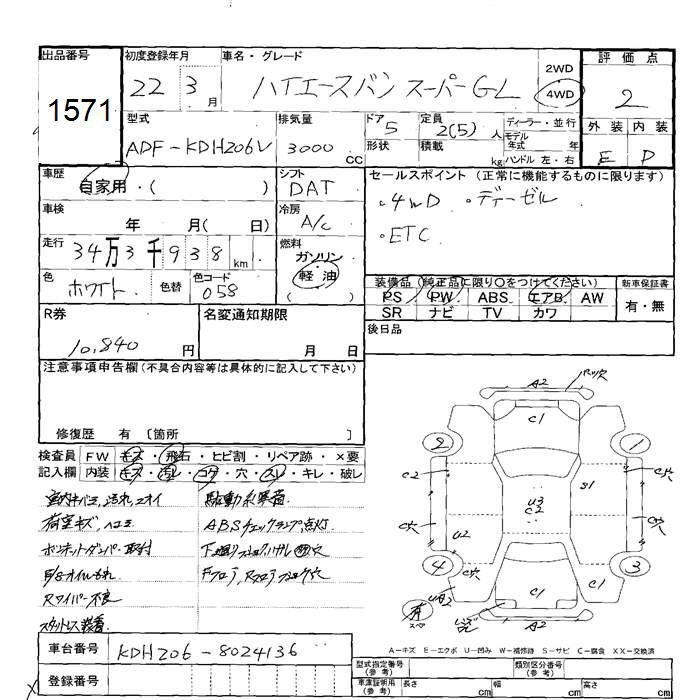 出品番号
1571
初度登録年月
22 3月
車名・グレード
ハイエースバン スーパーGL
2WD
4WD
評価点
2
外装 内装
E D
型式
ADF-KDH206V
排気量
3000 CC
ドア 5
形状
定員 2(5) 人
積載 kg
ディーラー・並行
モデル年式 年
ハンドル 左・右
車歴
自家用・( )
シフト
DAT
セールスポイント (正常に機能するものに限ります)
・4WD ・ディーゼル
・ETC
車検
年 月( 日)
冷房
A/C
走行
34万3千938km
燃料
ガソリン
軽油
( )
色
ホワイト 色替
色コード
058
装備品(純正品に限り○をつけてください)
PS PW ABS エアB AW
SR ナビ TV カワ
新車保証書
有・無
R券
10,840円
名変通知期限
月 日
後日品
注意事項申告欄(不具合内容等は具体的に記入して下さい)
修復歴 有 〔箇所 〕
検査員記入欄
FW キズ・飛石・ヒビ割・リペア跡・×要
内装 キズ・汚レ・コゲ・穴・スレ・キレ・破レ
荷室キズ、ヘコミ
ボンネットダンパー取付
Rワイパー不良
スタットレス装着
駆動系異音
ABSチェックランプ点灯
A2
C1
2
1
C2
C穴
S1
U3
C2
C穴
C穴
U2
4
3
C穴
C1
C1
有
スペア
A2
A-キズ E-エクボ U-凹み W-補修跡 S-サビ C-腐食 XX-交換済
車台番号
KDH206-8024136
登録番号
型式指定番号(参考)
類別区分番号(参考)
車庫証明用(参考)
長さ cm 幅 cm 高さ cm